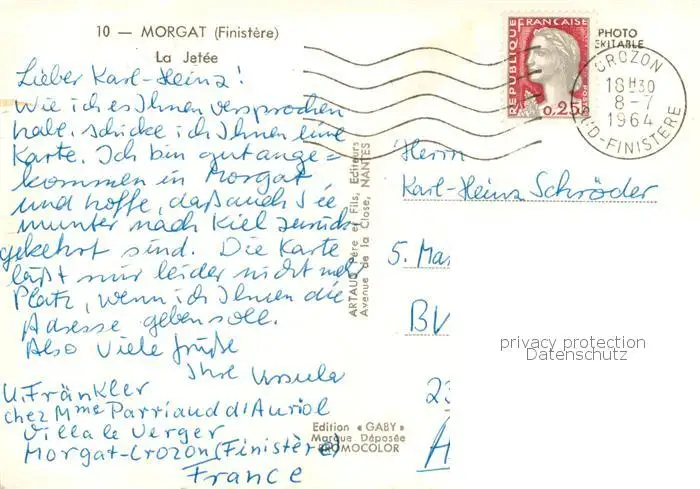 10 — MORGAT (Finistère)
La Jetée
Lieber Karl-Heinz!
Wie ich es Ihnen versprochen
habe, schicke ich Ihnen eine
Karte. Ich bin gut ange=
kommen in Morgat
und hoffe, daß auch Sie
munter nach Kiel zurück-
gekehrt sind. Die Karte
läßt nur leider nicht mehr
Platz, wenn ich Ihnen die
Adresse geben soll.
Also viele Grüße
Ihre Ursula
U. Fränkler
chez Mme Parriaud d'Auriol
Villa le Verger
Morgat-Crozon (Finistère)
France
ARTAUD Père et Fils, Editeurs
Avenue de la Close, NANTES
Edition « GABY »
Marque Déposée
PROMOCOLOR
REPUBLIQUE FRANÇAISE
POSTES
0,25
PHOTO
VERITABLE
CROZON
18H30
8-7
1964
D-FINISTERE
Herrn
Karl-Heinz Schröder
5. Ma
BV
23
privacy protection
Datenschutz